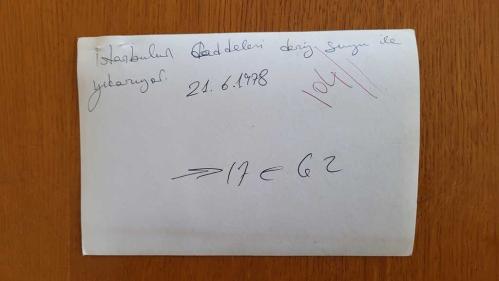 İstanbulun Caddeleri deniz suyu ile
yıkanıyor.
21.6.1978
104
→ 17 C 62